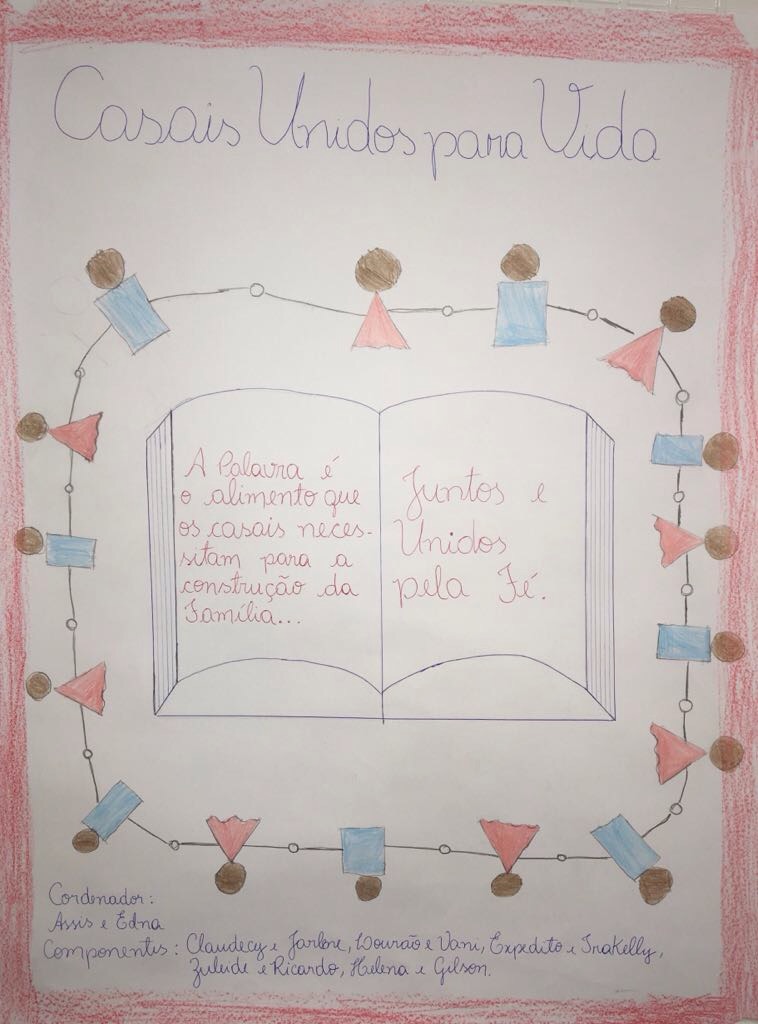 Casais Unidos para Vida
A Palavra é
o alimento que
os casais neces-
sitam para a
construção da
Família...
Juntos e
Unidos
pela Fé.
Cordenador:
Assis e Edna
Componentes: Claudecy e Jarlene, Lourão e Vani, Expedito e Irakelly,
Zuleide e Ricardo, Helena e Gilson.